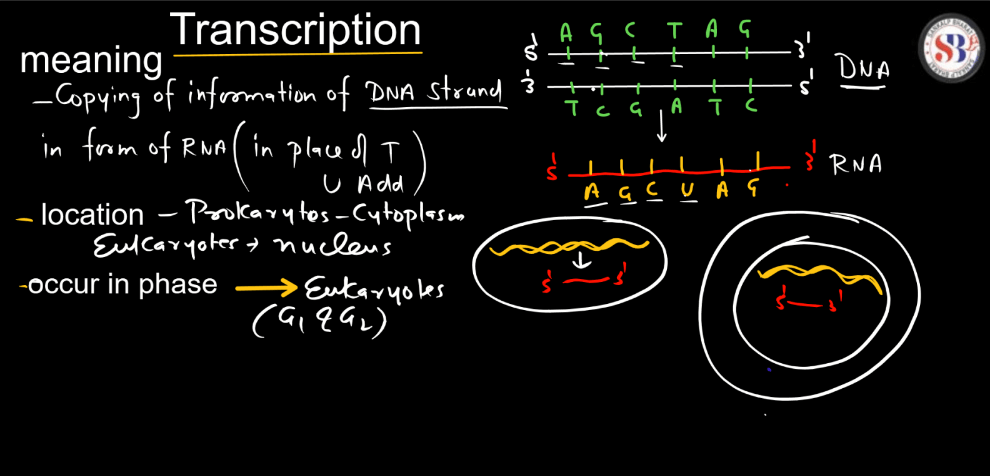 Transcription
meaning
- Copying of information of DNA strand
in form of RNA (in place of T
U Add)
- location - Prokaryotes - Cytoplasm
Eukaryotes → nucleus
- occur in phase → Eukaryotes
(G1 & G2)
A G C T A G
5' 3'
3' 5'
T C G A T C
DNA
5' 3' RNA
A G C U A G
5' 3'
5' 3'
SB